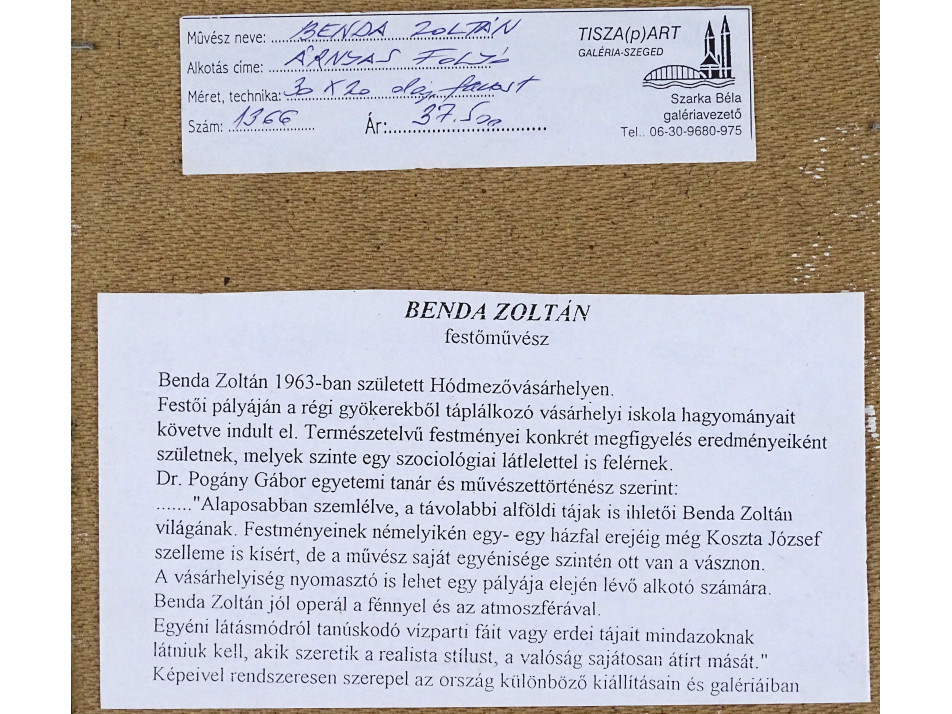 Művész neve: BENDA ZOLTÁN
Alkotás címe: ÁRNYAS FOLYÓ
Méret, technika: 30 X 20 olaj, farost
Szám: 1366 Ár: 37.500
TISZA(p)ART
GALÉRIA-SZEGED
Szarka Béla
galériavezető
Tel.. 06-30-9680-975
BENDA ZOLTÁN
festőművész
Benda Zoltán 1963-ban született Hódmezővásárhelyen.
Festői pályáján a régi gyökerekből táplálkozó vásárhelyi iskola hagyományait
követve indult el. Természetelvű festményei konkrét megfigyelés eredményeiként
születnek, melyek szinte egy szociológiai látlelettel is felérnek.
Dr. Pogány Gábor egyetemi tanár és művészettörténész szerint:
......."Alaposabban szemlélve, a távolabbi alföldi tájak is ihletői Benda Zoltán
világának. Festményeinek némelyikén egy- egy házfal erejéig még Koszta József
szelleme is kísért, de a művész saját egyénisége szintén ott van a vásznon.
A vásárhelyiség nyomasztó is lehet egy pályája elején lévő alkotó számára.
Benda Zoltán jól operál a fénnyel és az atmoszférával.
Egyéni látásmódról tanúskodó vízparti fáit vagy erdei tájait mindazoknak
látniuk kell, akik szeretik a realista stílust, a valóság sajátosan átírt mását."
Képeivel rendszeresen szerepel az ország különböző kiállításain és galériáiban